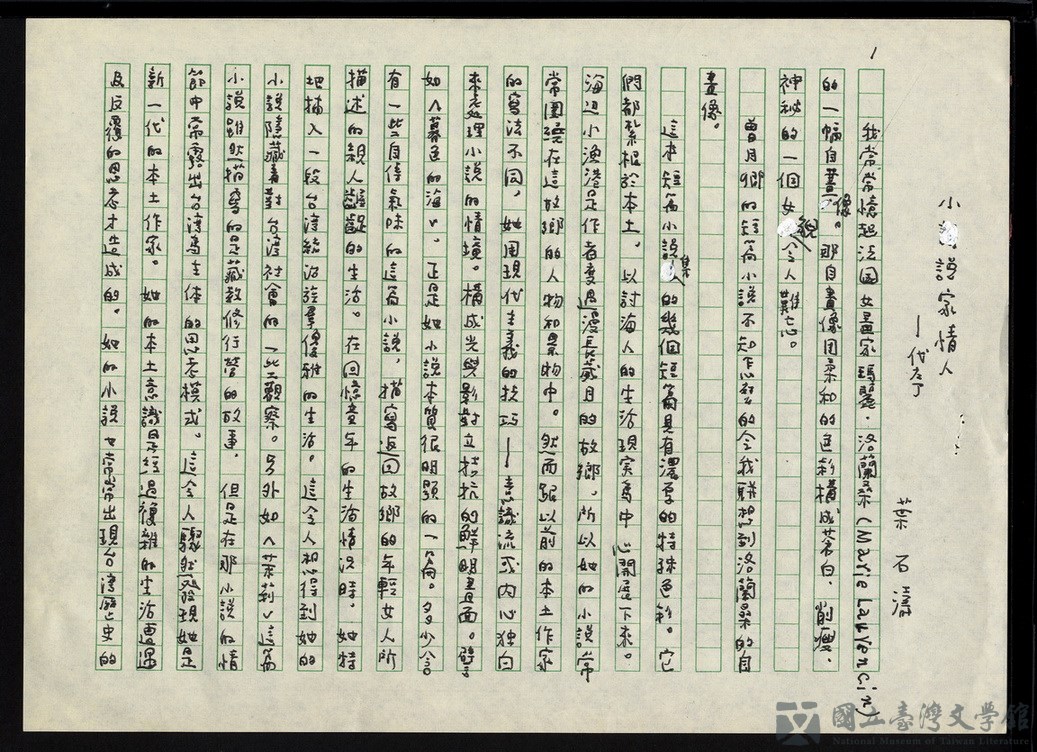 1
小說家情人
—代序
葉石濤
我常常憶起法国女畫家瑪麗·洛蘭桑(Marie Laurencin)
的一幅自畫像。那自畫像用柔和的色彩構成蒼白、削瘦、
神秘的一個女貌令人難忘。
曾月卿的短篇小說不知怎麼的令我聯想到洛蘭桑的自
畫像。
這本短篇小說集的幾個短篇具有濃厚的特殊色彩。它
們都紮根於本土,以討海人的生活現実為中心開展下來。
海边小漁港是作者度過漫長歲月的故鄉,所以她的小說常
常圍繞在這故鄉的人物和景物中。然而跟以前的本土作家
的寫法不同,她用現代主義的技巧—意識流或內心独白
來處理小說的情境。構成光與影對立拮抗的鮮明畫面。譬
如〈暮色的海〉。正是她小說本質很明顯的一篇。多少含
有一些自傳氣味的這篇小說,描寫返回故鄉的年輕女人所
描述的親人齷齪的生活。在回憶童年的生活情況時,她特
地插入一段台湾統治族羣優雅的生活。這令人想得到她的
小說隱藏着對台湾社會的一些觀察。另外如〈茉莉〉這篇
小說雖然描寫的是藏教修行營的故事,但是在那小說的情
節中常露出台湾為主体的思考模式。這令人驟然發現她是
新一代的本土作家。她的本土意識是经過複雜的生活遭遇
及反覆的思考才造成的。她的小說也常常出現台湾歷史的
國立臺灣文學館
National Museum of Taiwan Literature